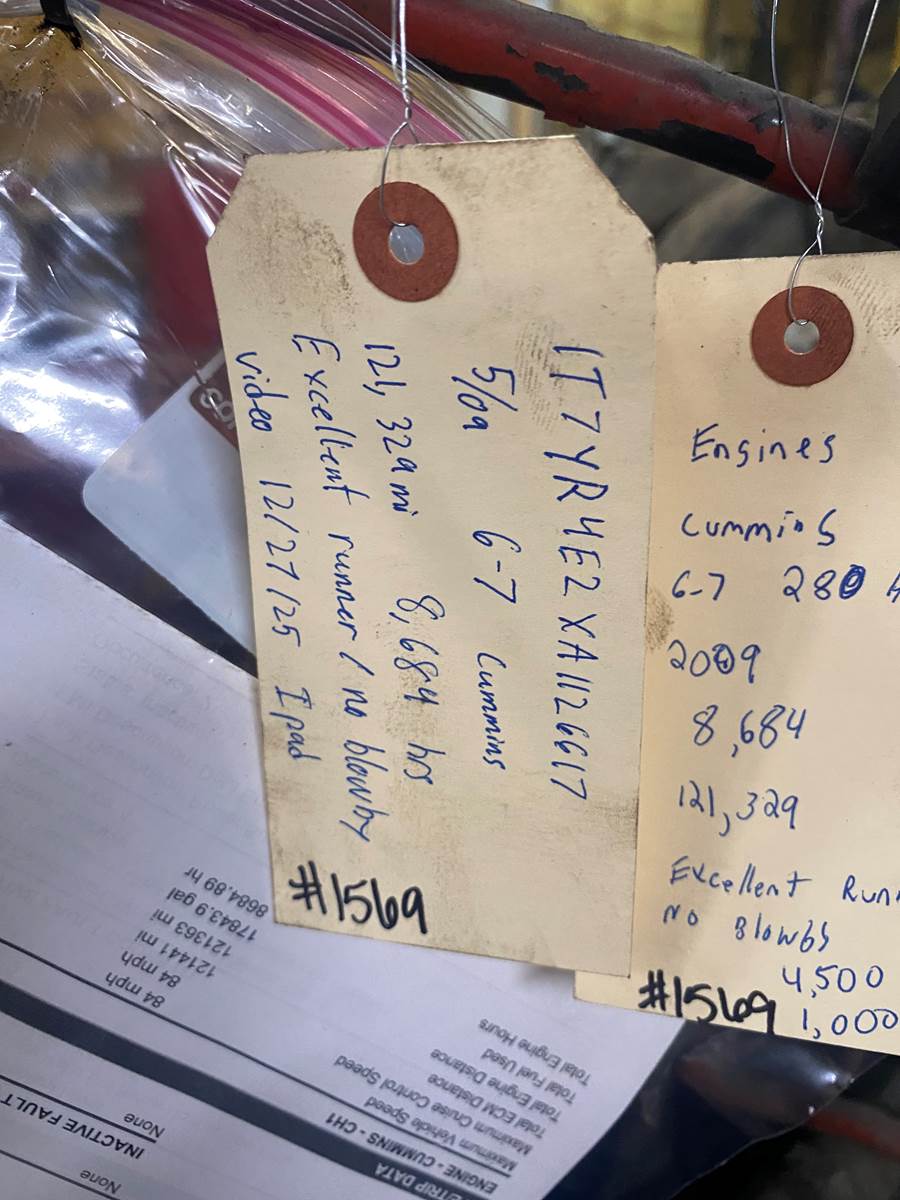 1T7YR4E2XA1126617
5/09 6-7 Cummins
121,329 mi 8,684 hrs
Excellent runner / no blowby
video 12/27/25 Ipad
#1569
Engines
Cummins
6-7 280
2009
8,684
121,329
Excellent Runn
No Blowby
4,500
#1569 1,000
TRIP DATA
ENGINE - CUMMINS - CH1
Maximum Vehicle Speed 84 mph
Maximum Cruise Control Speed 84 mph
Total ECM Distance 121441 mi
Total Engine Distance 121363 mi
Total Fuel Used 17843.9 gal
Total Engine Hours 8684.89 hr
None
INACTIVE FAULT
None